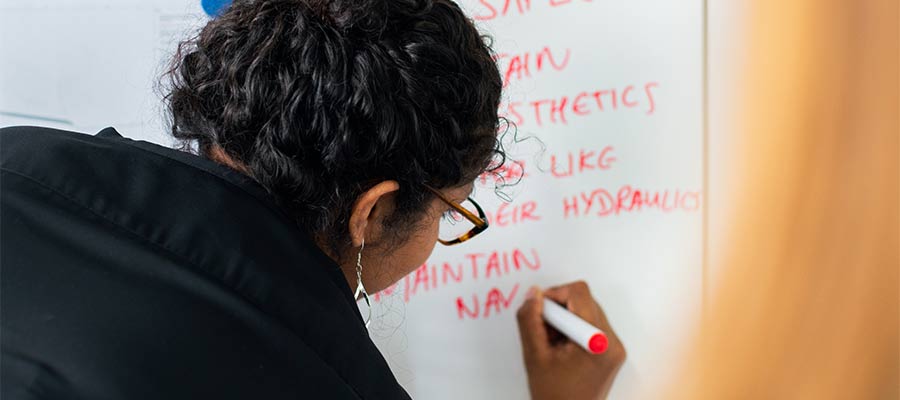 SAFE
TAIN
STHETICS
LIKE
HEIR HYDRAULICS
MAINTAIN
NAV